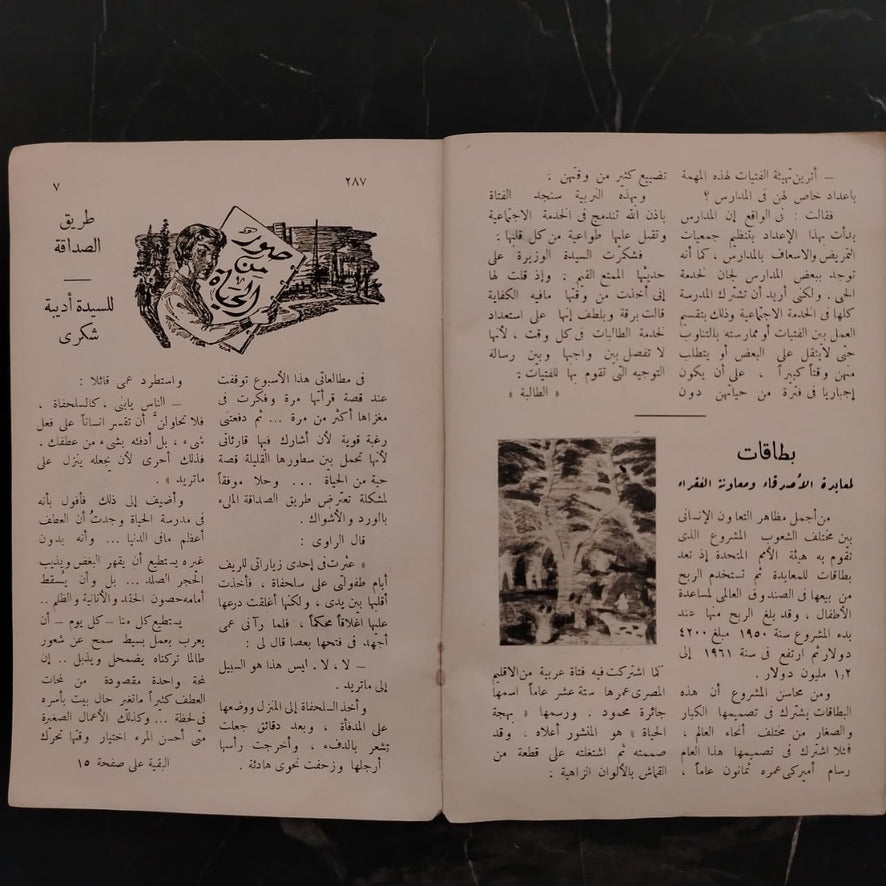 — أترين تهيئة الفتيات لهذه المهمة
باعداد خاص لهن فى المدارس ؟
فقالت : فى الواقع إن المدارس
بدأت بهذا الإعداد بتنظيم جمعيات
التمريض والاسعاف بالمدارس ، كما أنه
توجد ببعض المدارس لجان لخدمة
الحى . ولكنى أريد أن تشترك المدرسة
كلها فى الخدمة الاجتماعية وذلك بتقسيم
العمل بين الفتيات أو ممارسته بالتناوب
حتى لايثقل على البعض أو يتطلب
منهن وقتاً كبيراً ، على أن يكون
إجباريا فى فترة من حياتهن دون
تضييع كثير من وقتهن .
وبهذه التربية سنجد الفتاة
باذن الله تندمج فى الخدمة الاجتماعية
وتقبل عليها طواعية من كل قلبها .
فشكرت السيدة الوزيرة على
حديثها الممتع القيم . وإذ قلت لها
إنى أخذت من وقتها مافيه الكفاية
قالت برقة وبلطف إنها على استعداد
لخدمة الطالبات فى كل وقت ، لأنها
لا تفصل بين واجبها وبين رسالة
التوجيه التى تقوم بها للفتيات .
« الطالبة »
بطاقات
لمعايدة الأصدقاء ومعاونة الفقراء
من أجمل مظاهر التعاون الإنسانى
بين مختلف الشعوب المشروع الذى
تقوم به هيئة الأمم المتحدة إذ تعد
بطاقات للمعايدة ثم تستخدم الربح
من بيعها فى الصندوق العالمى لمساعدة
الأطفال ، وقد بلغ الربح منها عند
بدء المشروع سنة ١٩٥٠ مبلغ ٤٢٠٠
دولار ثم ارتفع فى سنة ١٩٦١ إلى
١,٢ مليون دولار .
ومن محاسن المشروع أن هذه
البطاقات يشترك فى تصميمها الكبار
والصغار من مختلف أنحاء العالم ،
فمثلا اشترك فى تصميمها هذا العام
رسام أميركى عمره ثمانون عاماً ،
كما اشتركت فيه فتاة عربية من الاقليم
المصرى عمرها ستة عشر عاماً اسمها
جائزة محمود . ورسمها « بهجة
الحياة » هو المنشور أعلاه . وقد
صممته ثم اشتغلته على قطعة من
القماش بالألوان الزاهية .
٢٨٧
٧
صور
من
الحياة
طريق
الصداقة
للسيدة أديبة
شكرى
فى مطالعاتى هذا الأسبوع توقفت
عند قصة قرأتها مرة وفكرت فى
مغزاها أكثر من مرة ... ثم دفعتنى
رغبة قوية لأن أشارك فيها قارئاتى
لأنها تحمل بين سطورها القليلة قصة
حية من الحياة ... وحلا موفقاً
لمشكلة تعترض طريق الصداقة الملىء
بالورد والأشواك .
قال الراوى :
« عثرت فى إحدى زياراتى للريف
أيام طفولتى على سلحفاة ، فأخذت
أقلبها بين يدى ، ولكنها أغلقت درعها
عليها اغلاقاً محكماً ، فلما رآنى عمى
أجهد فى فتحها بعصا قال لى :
— لا ، لا . ليس هذا هو السبيل
إلى ماتريد .
وأخذ السلحفاة إلى المنزل ووضعها
على المدفأة ، وبعد دقائق جعلت
تشعر بالدفء ، وأخرجت رأسها
أرجلها وزحفت نحوى هادئة .
واستطرد عمى قائلا :
— الناس يابنى ، كالسلحفاة ،
فلا تحاولن أن تقسر انساناً على فعل
شىء ، بل أدفئه بشىء من عطفك ،
فذلك أحرى لأن يجعله ينزل على
ماتريد » .
وأضيف إلى ذلك فأقول بأنه
فى مدرسة الحياة وجدت أن العطف
أعظم مافى الدنيا ... وأنه بدون
غيره يستطيع أن يقهر البغض ويذيب
الحجر الصلد ... بل وأن يسقط
أمامه حصون الحقد والأنانية والظلم ..
يستطيع كل منا — كل يوم — أن
يعرب بعمل بسيط سمح عن شعور
طالما تركناه يضمحل ويذبل .. إن
لمحة واحدة مقصودة من لمحات
العطف كثيراً ماتغير حال بيت بأسره
فى لحظة ... وكذلك الأعمال الصغيرة
متى أحسن المرء اختيار وقتها تحرك
البقية على صفحة ١٥